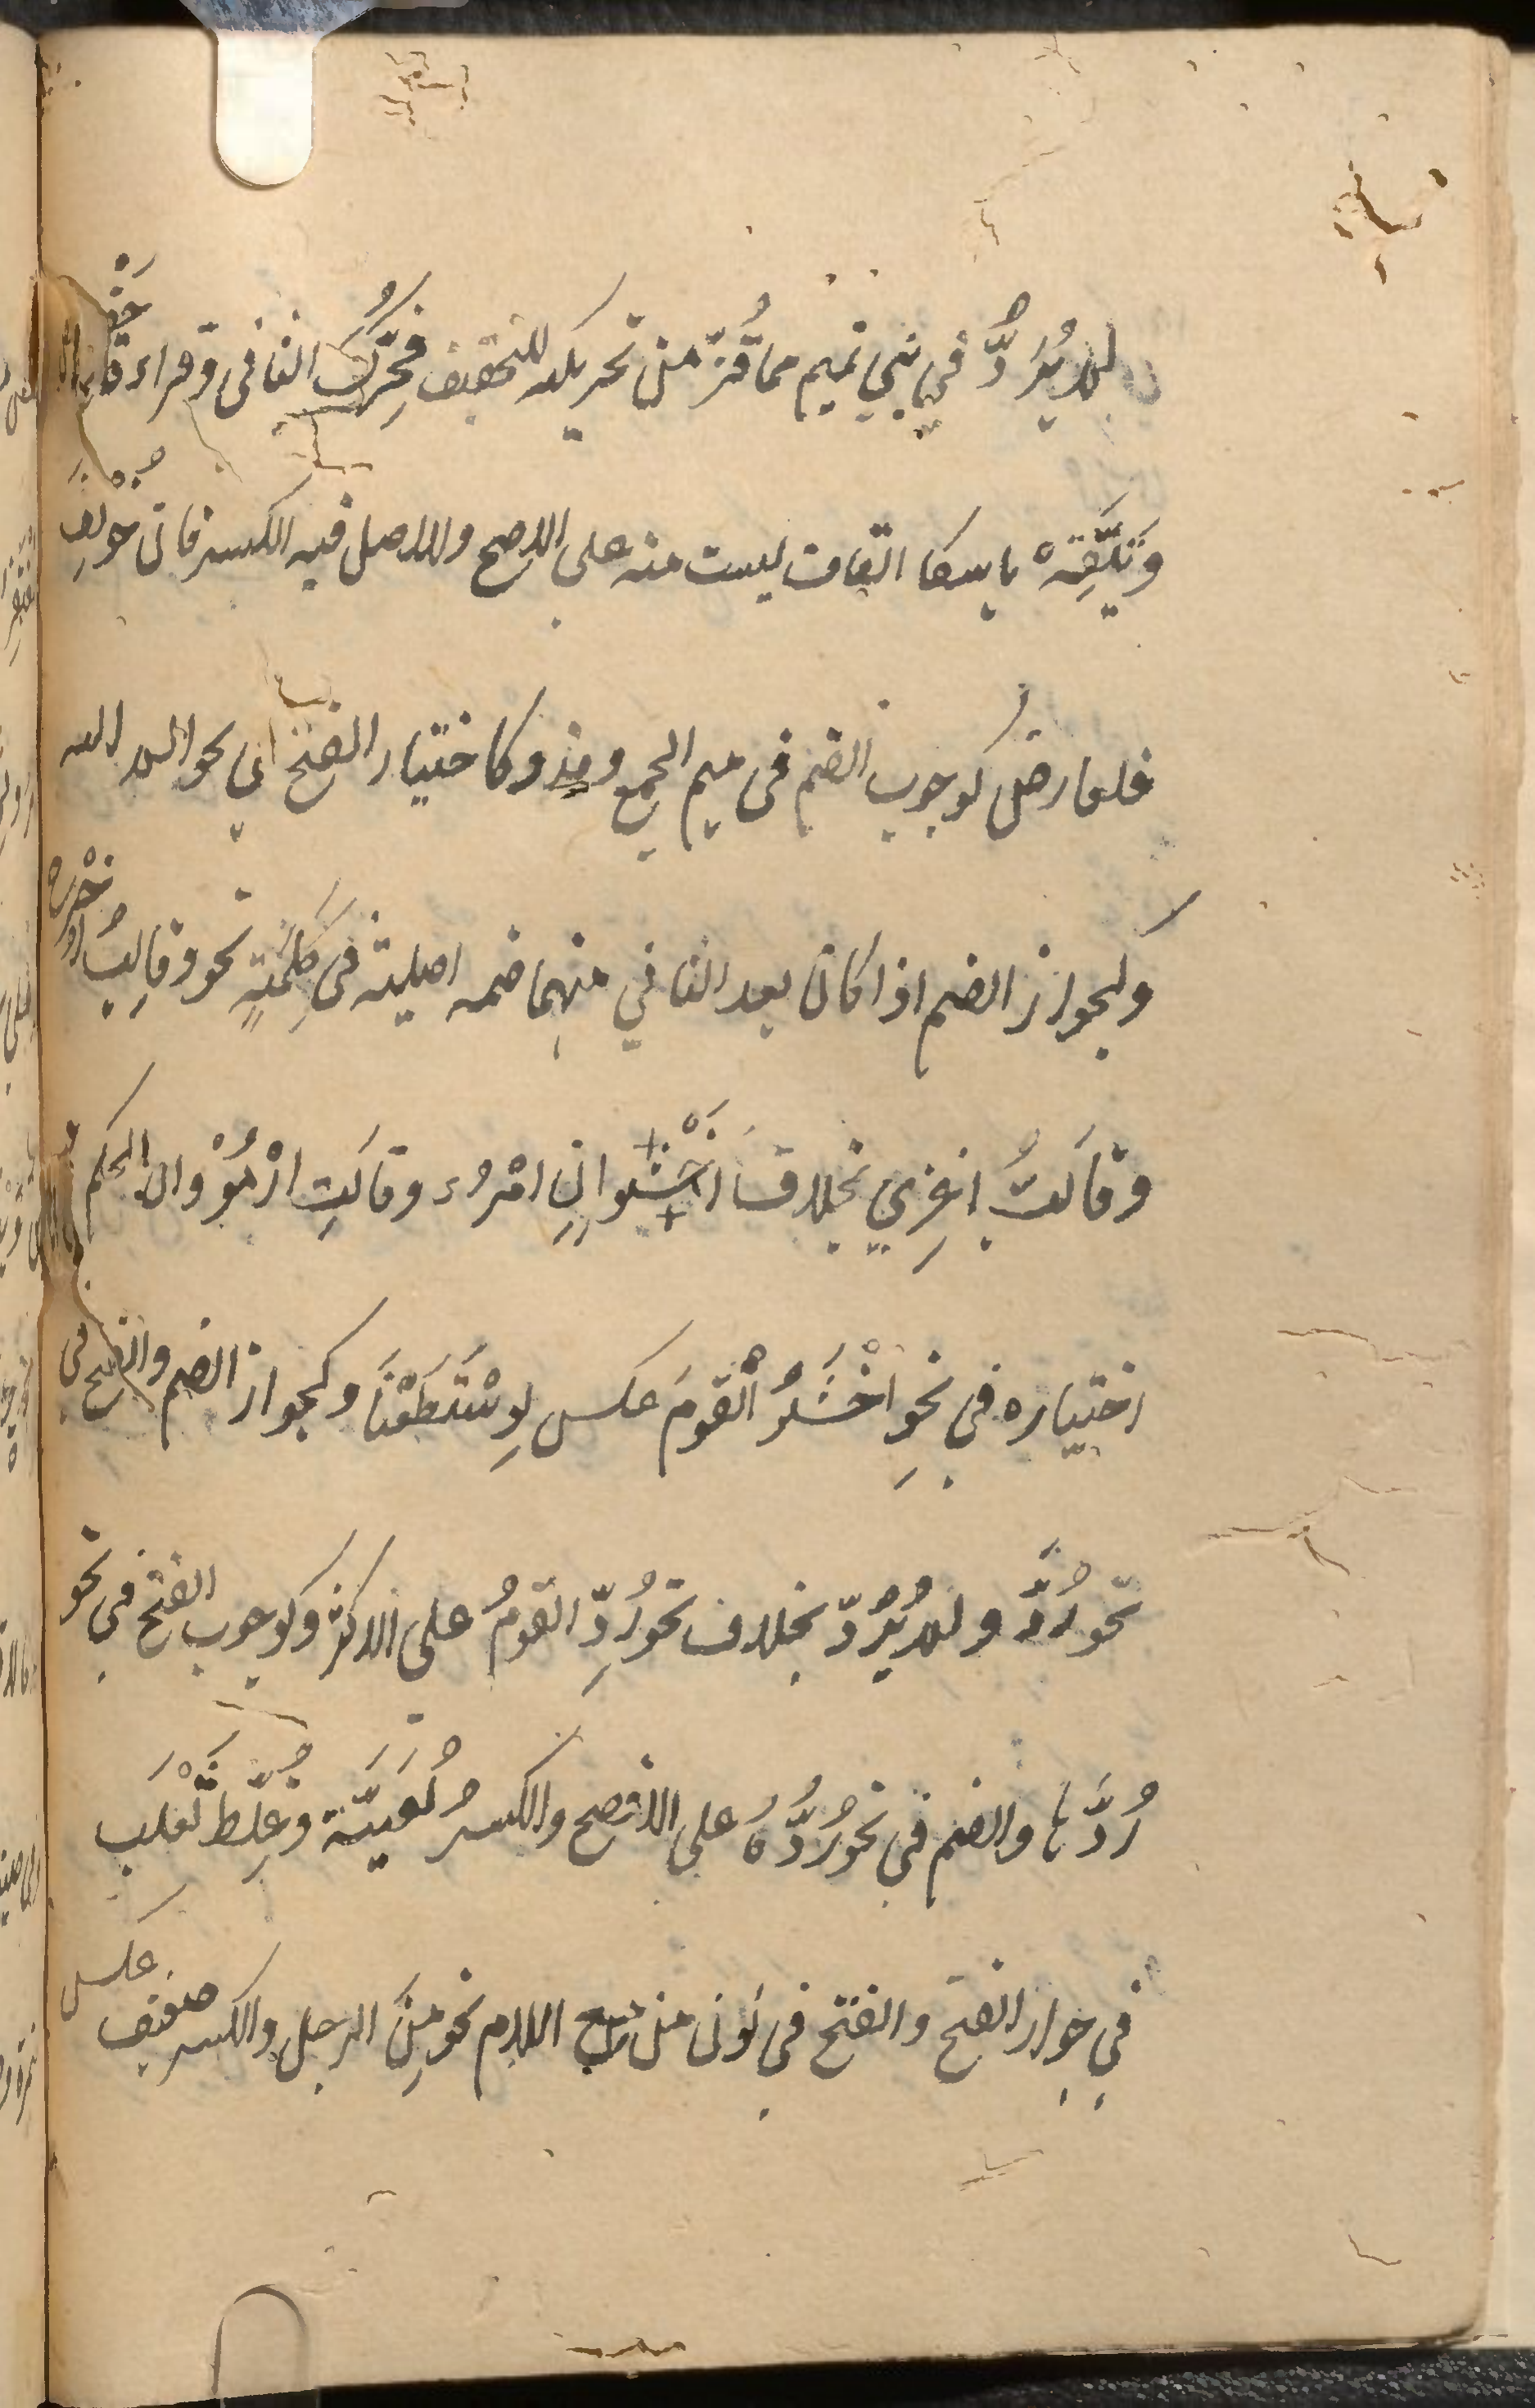 لم يُرُدَّ في بني تميم مما فُرّ من تحريكه للتخفيف فحُرِّك الثاني وقراءة حَفْص
وَيَتَّقْهِ باسكا القاف ليست منه على الاصح والاصل فيه الكسر فان خُوْلِفَ
فلعارض كوجوب الضم فى ميم الجمع ومذ وكاختيار الفتح في نحو الم الله
وكجواز الضم اذا كان بعد الثاني منهما ضمه اصلية فى كَلِمَتِهِ نحو وقالتُ اخْرج
وقالتُ اغزي بخلاف اخْشَوا انِ امْرُء وقالَتِ ارْمُوْا وان الحكم
اختياره في نحوِ اخْشَوُ الْقَومَ عكس لوِ سْتَطَعْنَا وكجواز الضم والفتح في
نحو رُدَّ ولم يُرُدّ بخلاف نحو رُدِّ القومُ على الاكثر وكوجوب الفتح في نحو
رُدَّها والضم في نحو رُدُّهُ على الافصح والكسرُ لُغَيَّة وغُلِّطَ ثَعْلَب
في جواز الفتح والفتح في نون من مع اللام نحو مِنَ الرجل والكسر ضعيف عكس